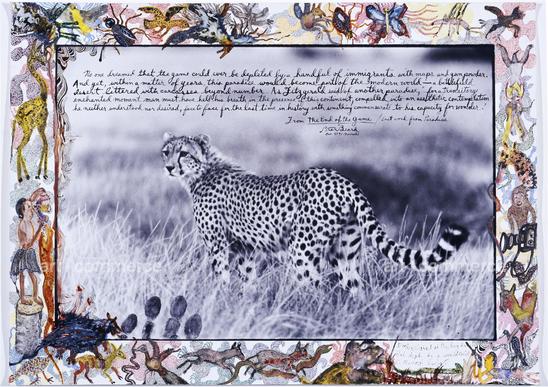 No one dreamed that the game could ever be depleted by a handful of immigrants with maps and gunpowder.
And yet, within a matter of years this paradise would become part of the modern world — a battlefield
desert littered with carcasses beyond number. As Fitzgerald said of another paradise, "for a transitory
enchanted moment man must have held his breath in the presence of this continent, compelled into an aesthetic contemplation
he neither understood nor desired, face to face for the last time in history with something commensurate to his capacity for wonder."
From The End of the Game / Last word from Paradise
Peter Beard
art + commerce
art + commerce